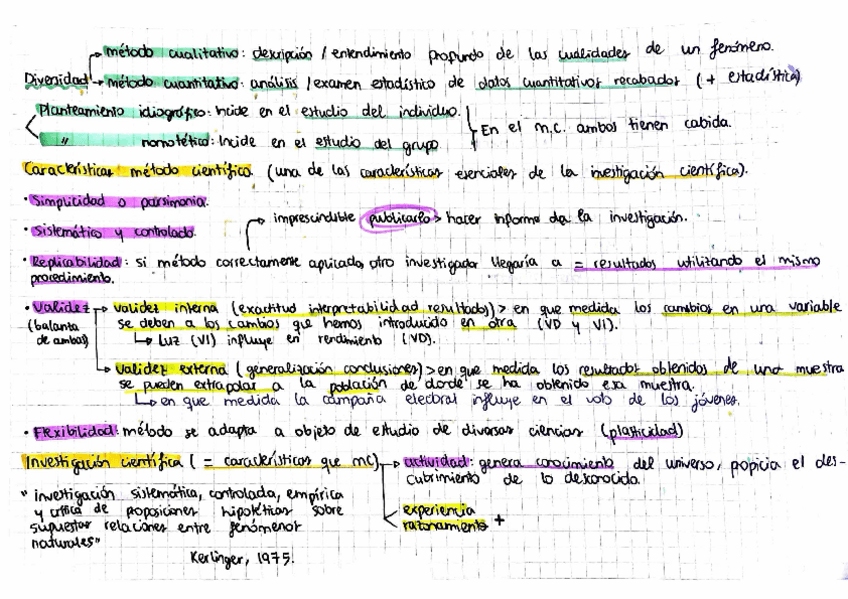 método cualitativo: descripción / entendimiento profundo de las cualidades de un fenómeno.
Diversidad método cuantitativo: análisis / examen estadístico de datos cuantitativos recabados (+ estadística)
Planteamiento idiográfico: Incide en el estudio del individuo.
En el m.c. ambos tienen cabida.
" nomotético: Incide en el estudio del grupo.
Características método científico. (una de las características esenciales de la investigación científica).
· Simplicidad o parsimonia.
imprescindible publicarlo > hacer informe de la investigación.
· Sistemático y controlado.
· Replicabilidad: si método correctamente aplicado, otro investigador llegaría a = resultados utilizando el mismo
procedimiento.
· Validez validez interna (exactitud interpretabilidad resultados) > en que medida los cambios en una variable
(balanza se deben a los cambios que hemos introducido en otra (VD y VI).
de ambas) Luz (VI) influye en rendimiento (VD).
validez externa (generalización conclusiones) > en que medida los resultados obtenidos de una muestra
se pueden extrapolar a la población de donde se ha obtenido esa muestra.
en que medida la campaña electoral influye en el voto de los jóvenes.
· Flexibilidad: método se adapta a objeto de estudio de diversas ciencias (plasticidad)
Investigación científica ( = características que mc) actividad: genera conocimiento del universo, propicia el des-
cubrimiento de lo desconocido.
"investigación sistemática, controlada, empírica
y crítica de proposiciones hipotéticas sobre
supuestas relaciones entre fenómenos
naturales"
experiencia
razonamiento +
Kerlinger, 1975.